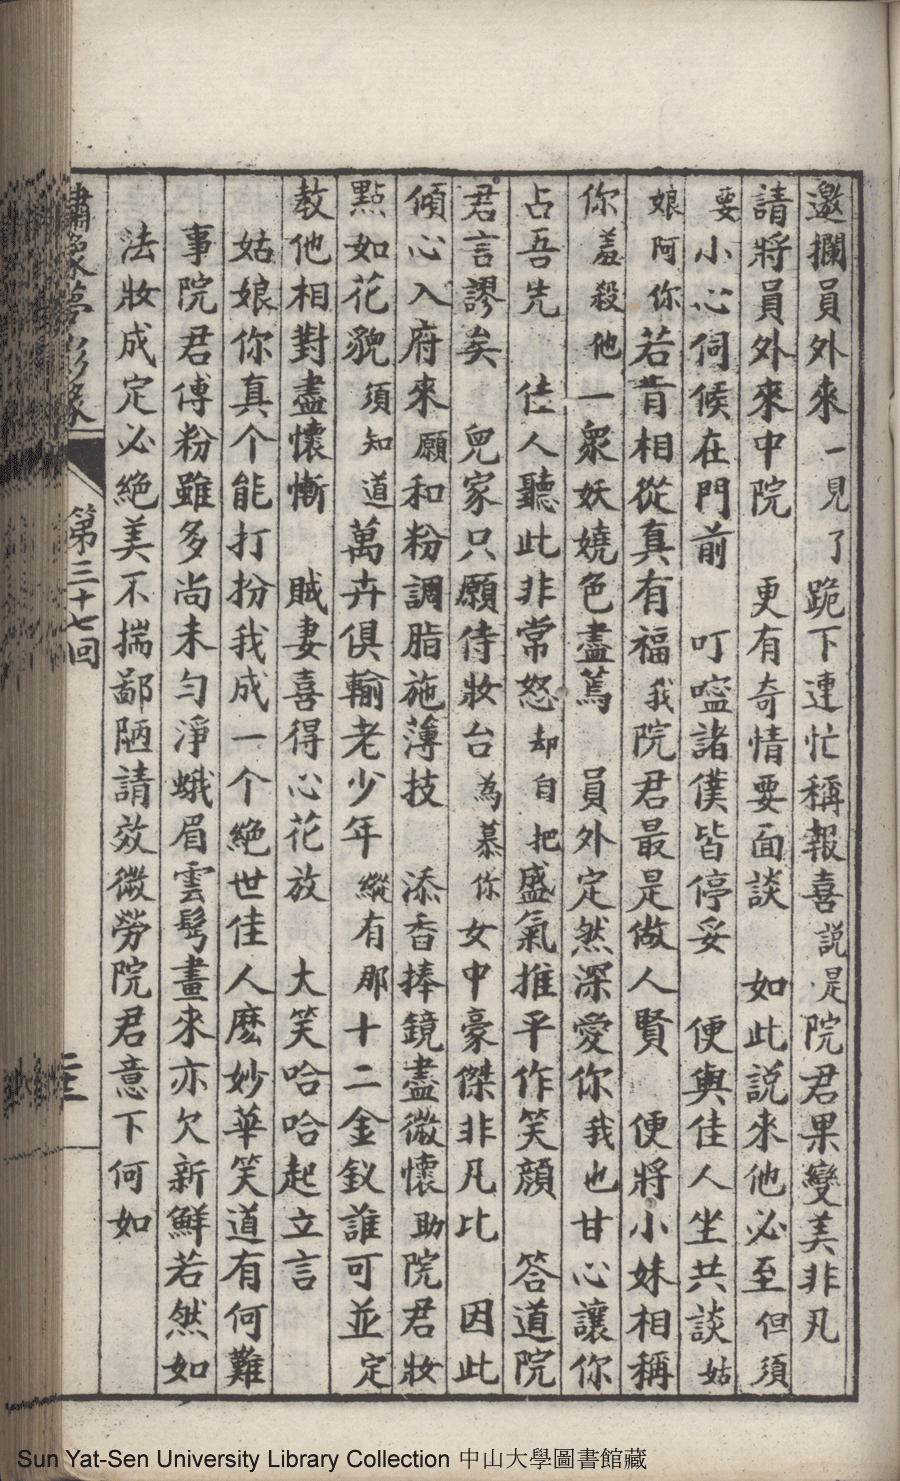 邀攔員外來一見了跪下連忙稱報喜説是院君果變美非凡
請將員外來中院　更有奇情要面談　如此説來他必至但須
要小心伺候在門前　叮嚀諸僕皆停妥　便與佳人坐共談姑
娘阿你若昔相從真有福我院君最是做人賢　便將小妹相稱
你羞殺他一衆妖嬈色盡蔫　員外定然深愛你我也甘心讓你
占吾先　佳人聽此非常怒却自把盛氣推平作笑顔　答道院
君言謬矣　兒家只願侍妝台為慕你女中豪傑非凡比　因此
傾心入府來願和粉調脂施薄技　添香捧鏡盡微懷助院君妝
點如花貌須知道萬卉俱輸老少年縱有那十二金釵誰可並定
教他相對盡懷慚　賊妻喜得心花放　大笑哈哈起立言
姑娘你真个能打扮我成一个絶世佳人麽妙華笑道有何難
事院君傅粉雖多尚未勻淨蛾眉雲髩畫來亦欠新鮮若然如
法妝成定必絶美不揣鄙陋請效微勞院君意下何如
繡像夢影緣　第三十七回